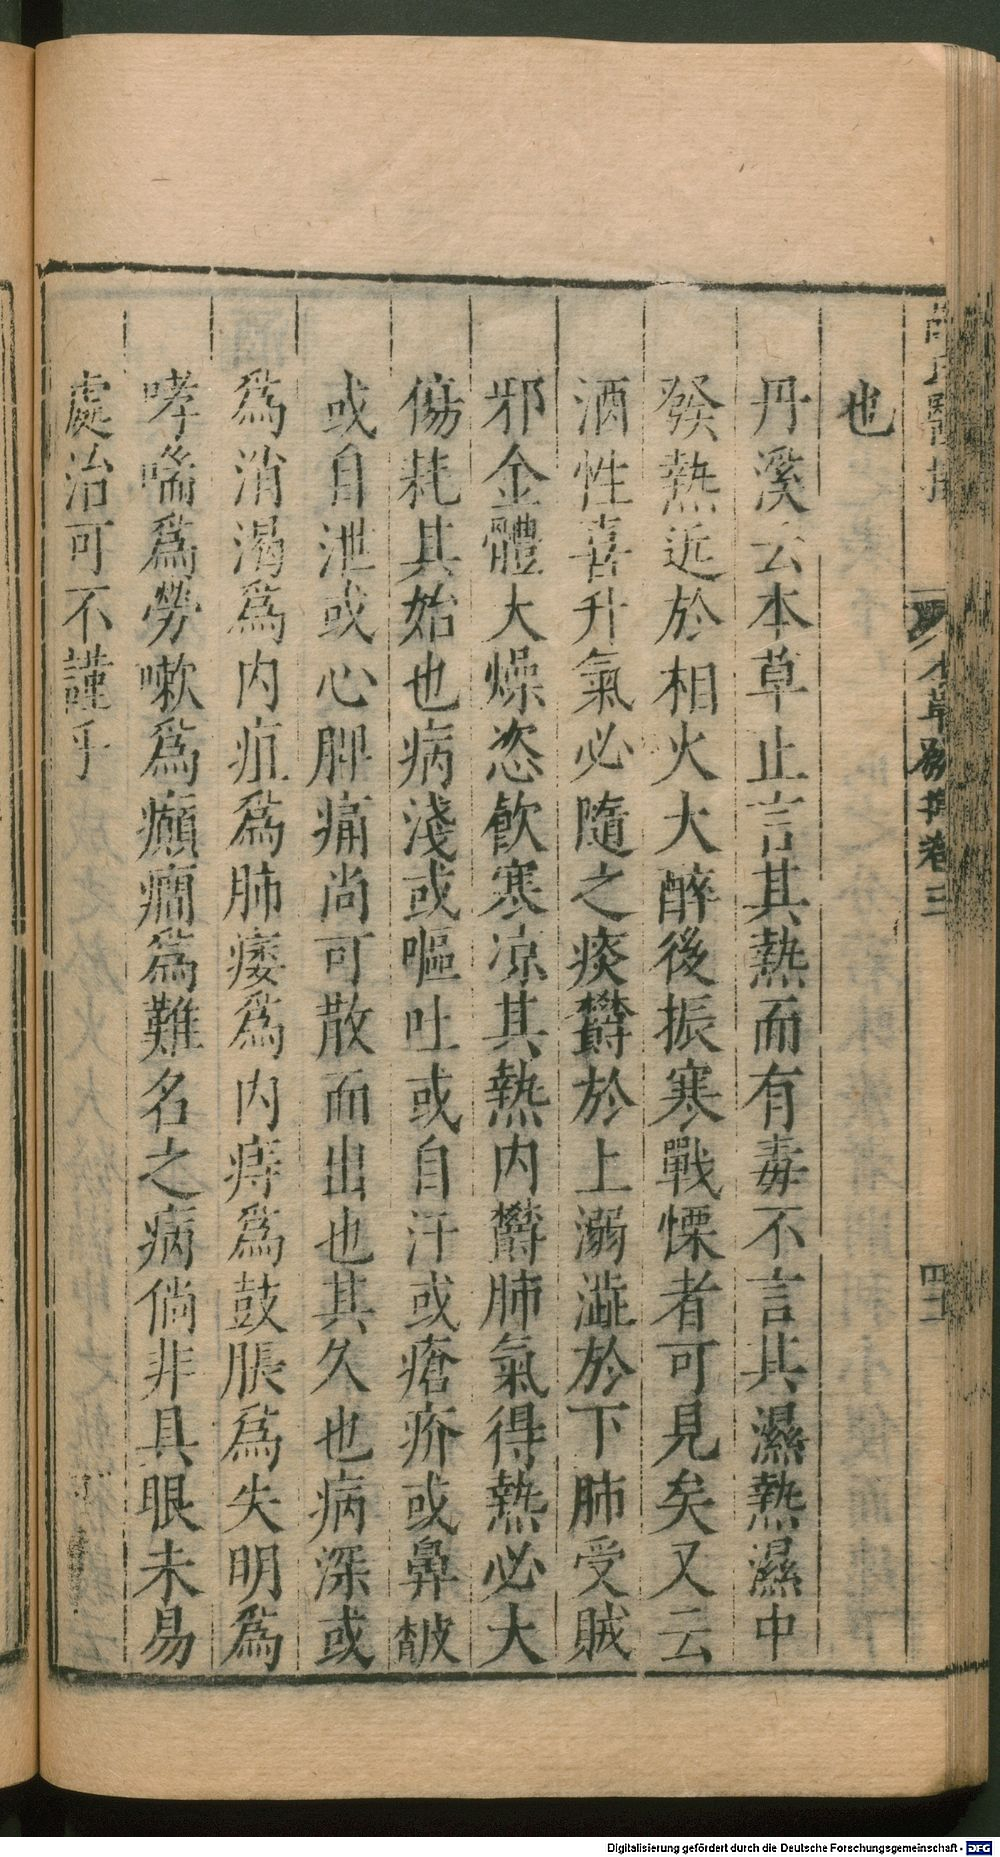 也
丹溪云本草止言其熱而有毒不言其濕熱濕中
發熱近於相火大醉後振寒戰慄者可見矣又云
酒性喜升氣必隨之痰欝於上溺澁於下肺受賊
邪金體大燥恣飲寒凉其熱内欝肺氣得熱必大
傷耗其始也病淺或嘔吐或自汗或瘡疥或鼻皶
或自泄或心脾痛尚可散而出也其久也病深或
為消渴為内疽為肺痿為内痔為鼓脹為失明為
哮喘為勞嗽為癲癇為難名之病倘非具眼未易
處治可不謹乎
本草發揮卷三
Digitalisierung gefördert durch die Deutsche Forschungsgemeinschaft - DFG